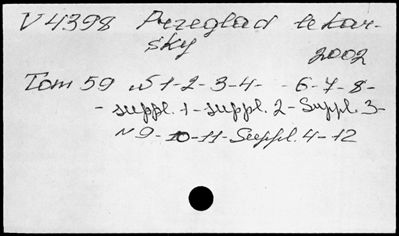 V 4398 Przeglad lekar-
sky
2002
Tom 59 N 1-2-3-4- -6-7-8-
- suppl. 1 - suppl. 2 - Suppl. 3-
N 9-10-11-Suppl. 4-12